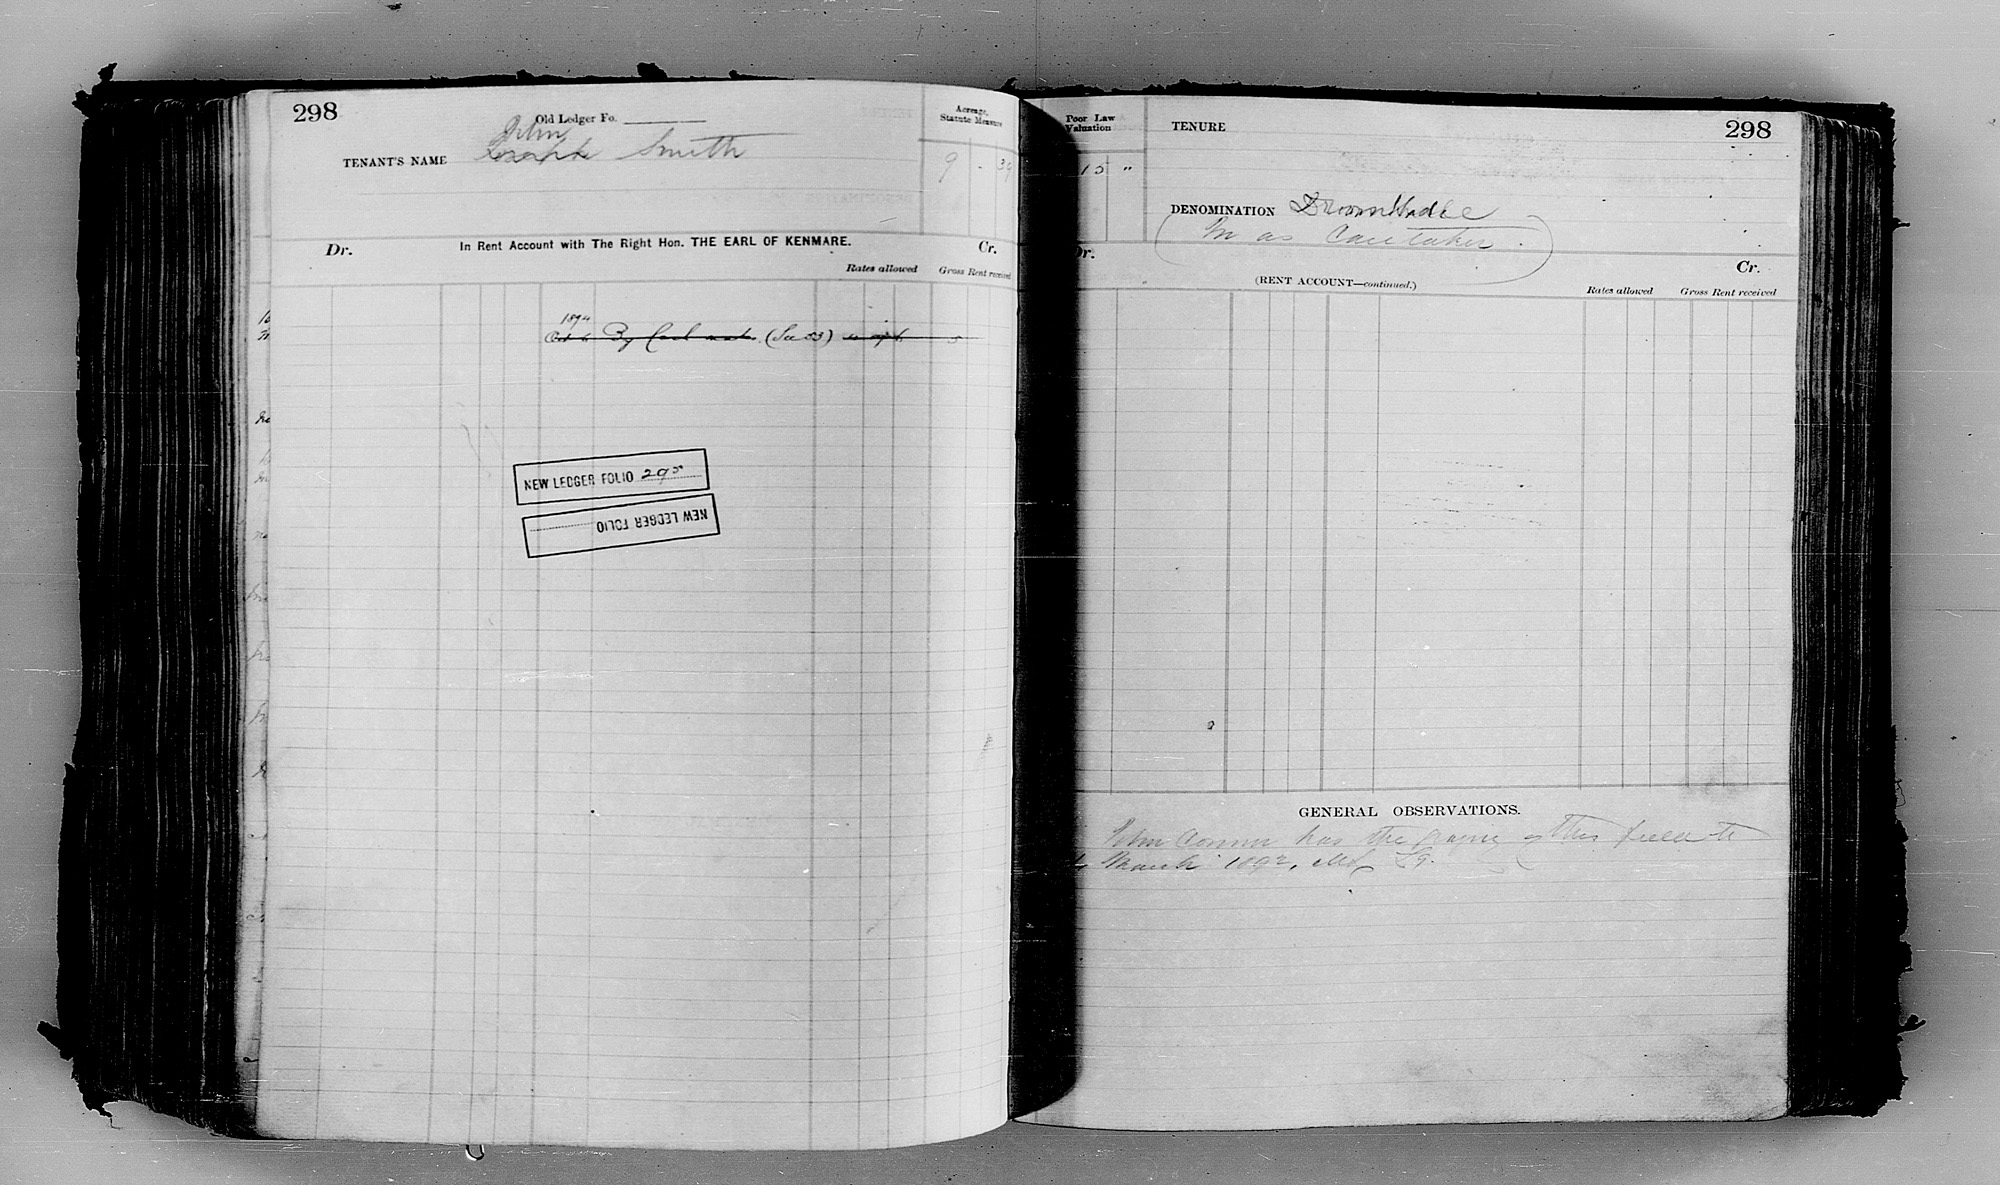 298
Old Ledger Fo.
John
TENANT'S NAME Joseph Smith
Acreage,
Statute Measure
9 - 39
Dr. In Rent Account with The Right Hon. THE EARL OF KENMARE. Cr.
Rates allowed Gross Rent received
1894
Oct 6 By Cash (See 53)
NEW LEDGER FOLIO 295
NEW LEDGER FOLIO
Poor Law
Valuation
15 "
TENURE 298
DENOMINATION
In as Caretaker.
Dr. Cr.
(RENT ACCOUNT—continued.)
Rates allowed Gross Rent received
GENERAL OBSERVATIONS.
John Connor has the grazing of this field to
March 1892,